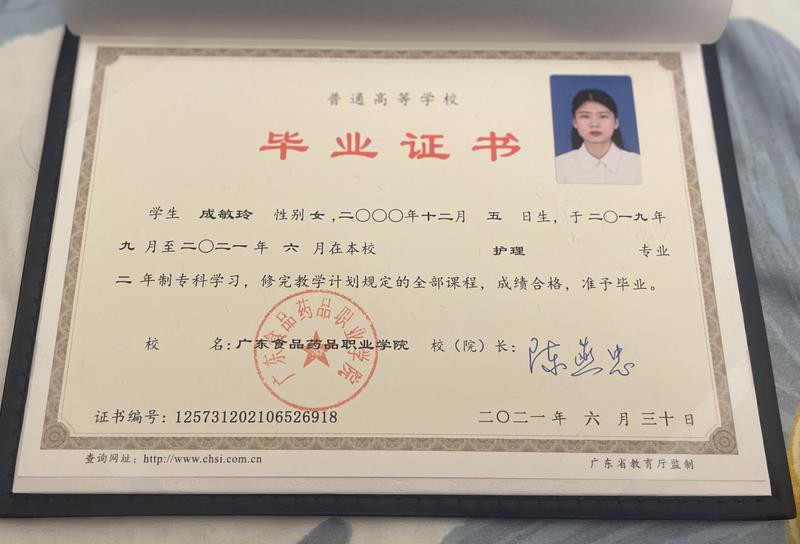 普通高等学校
毕业证书
学生 成敏玲 性别 女 ,二〇〇〇年十二月 五 日生，于二〇一九年
九 月至二〇二一年 六 月在本校 护理 专业
二 年制专科学习，修完教学计划规定的全部课程，成绩合格，准予毕业。
校 名：广东食品药品职业学院 校（院）长：陈燕忠
广东食品药品职业学院
证书编号：125731202106526918 二〇二一年 六 月 三十 日
查询网址：http://www.chsi.com.cn 广东省教育厅监制